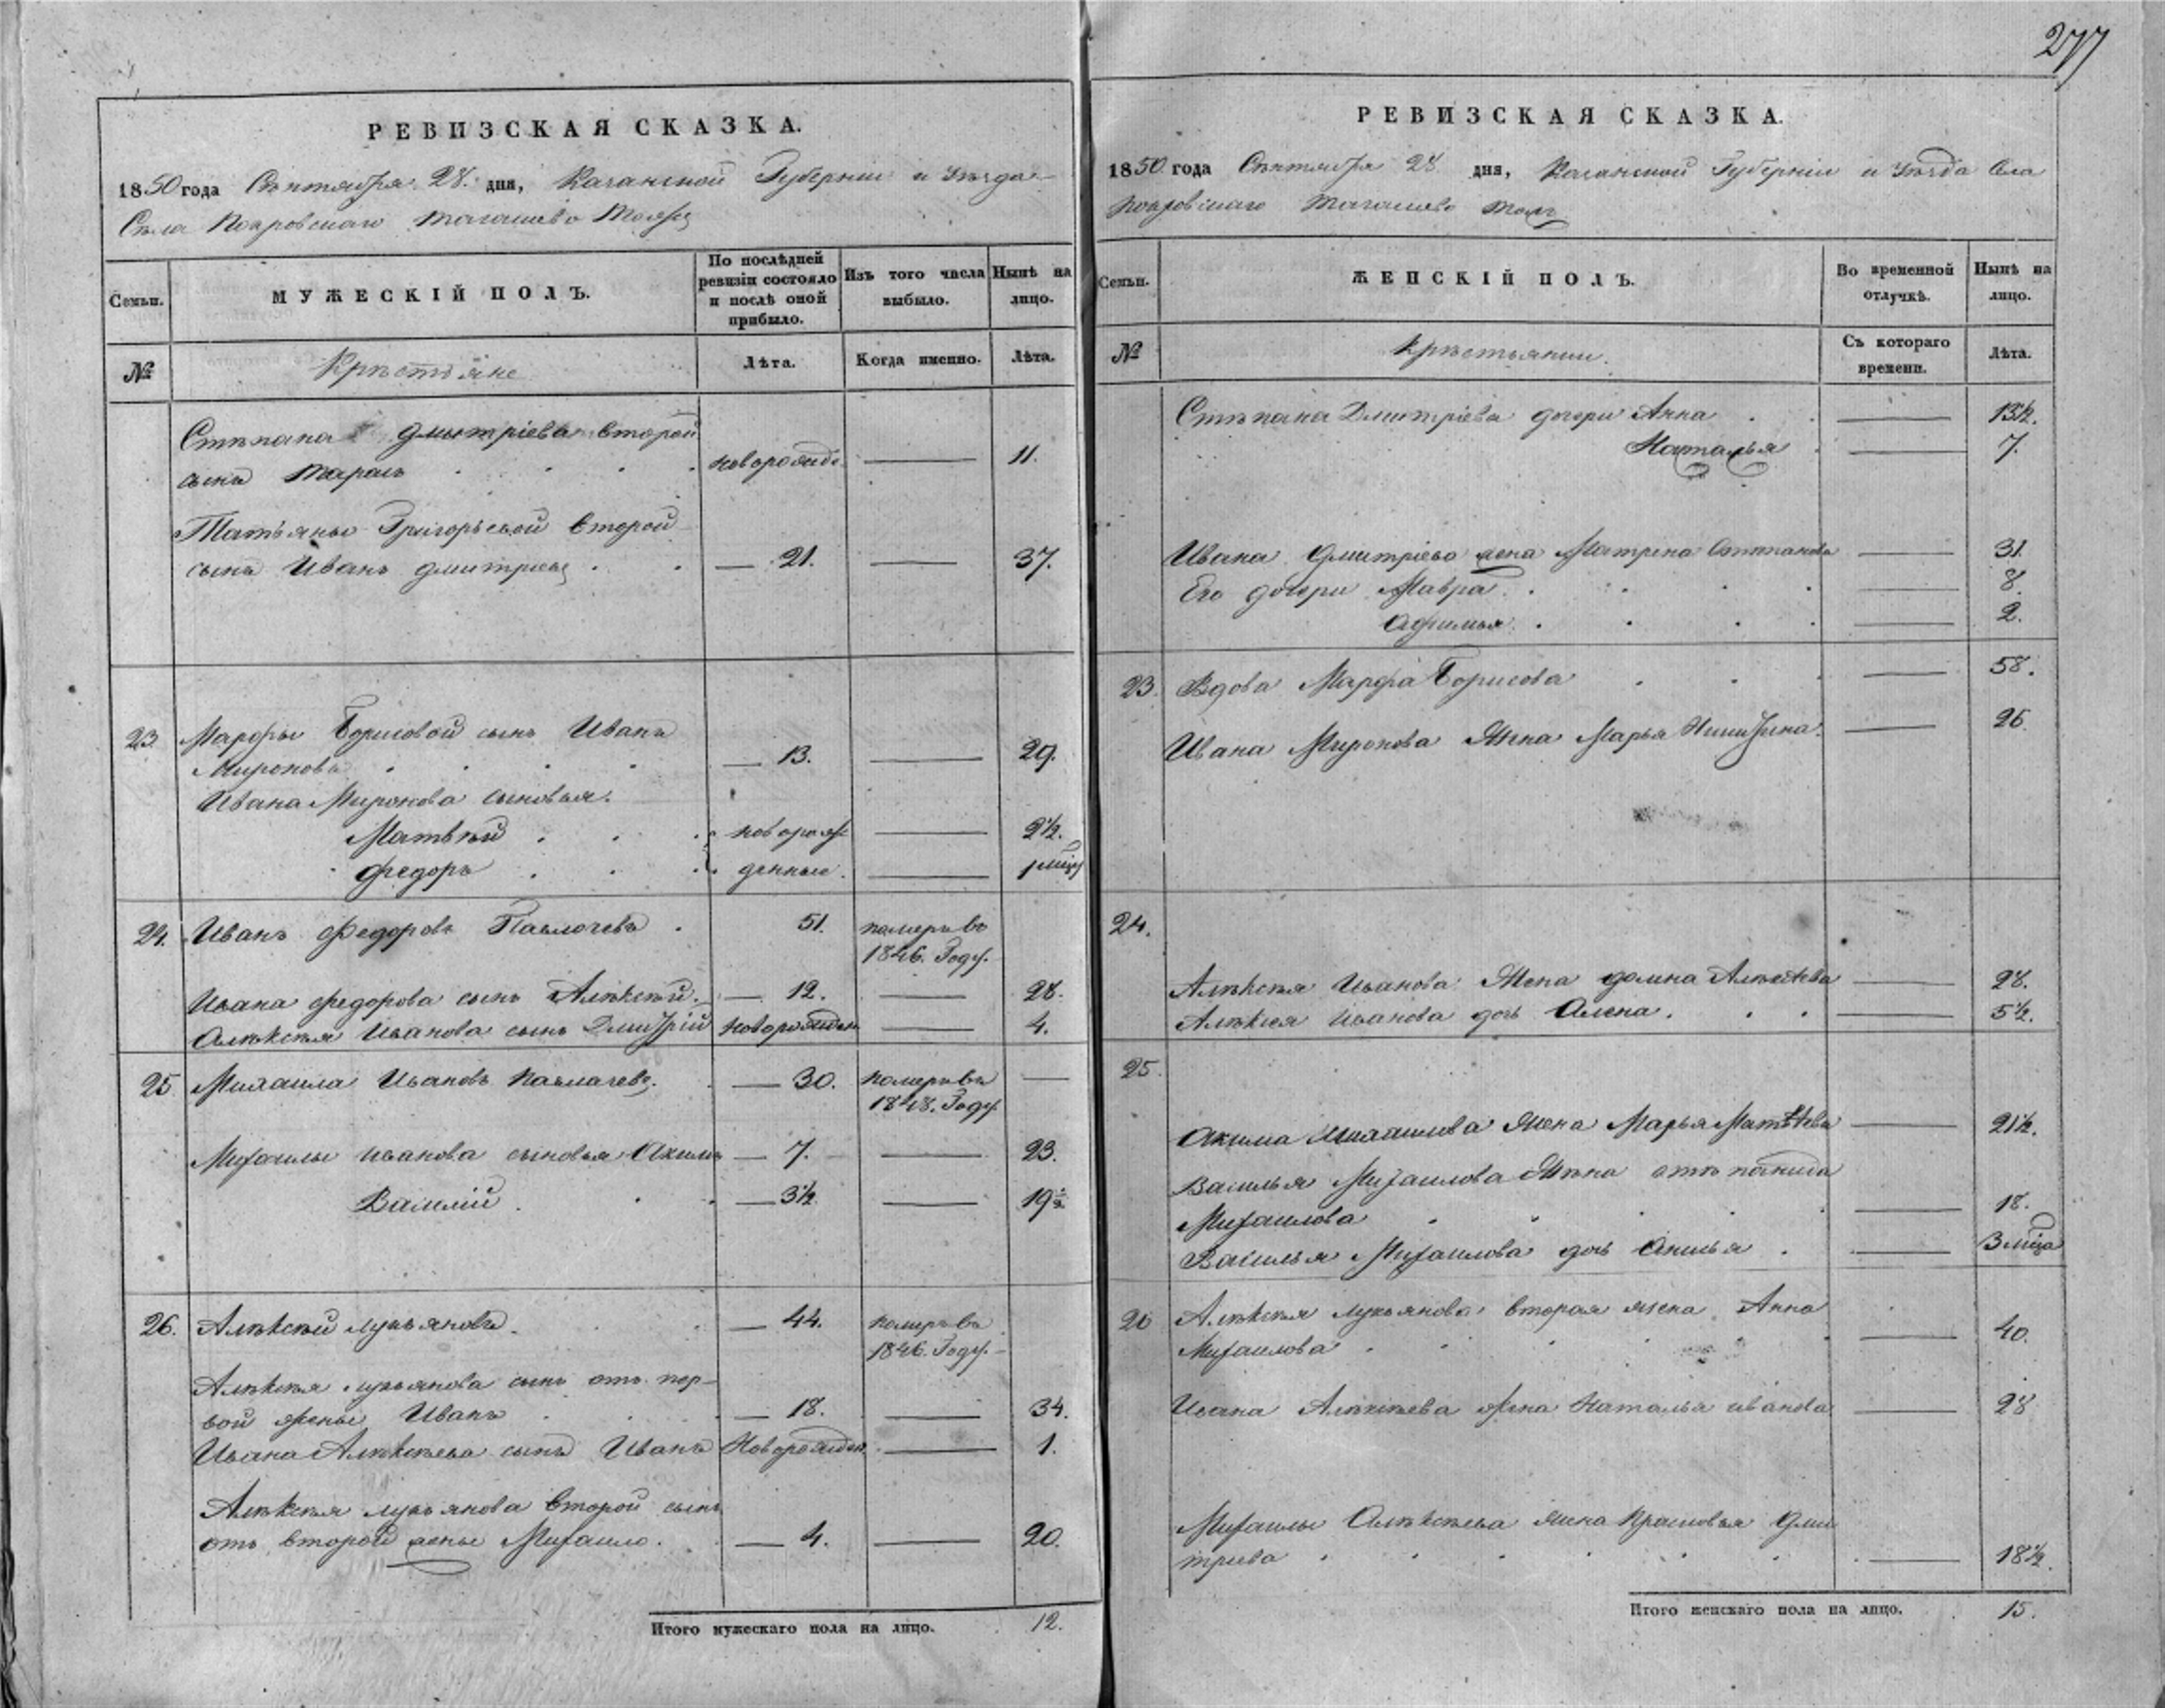 277
РЕВИЗСКАЯ СКАЗКА.
1850 года Сѣнтября 28. дня, Казанской Губерніи и Уѣзда
Сѣла Покровскаго Тагашево тожъ
Семьи.
МУЖЕСКІЙ ПОЛЪ.
По послѣдней ревизіи состояло и послѣ оной прибыло.
Изъ того числа выбыло.
Нынѣ на лицо.
№
Крѣстьяне
Лѣта.
Когда именно.
Лѣта.
Стѣпана Дмитріева второй
сынъ Тарасъ новорожде. 11.
Татьяны Григорьевой второй
сынъ Иванъ Дмитріевъ 21. 37.
23. Марфы Борисовой сынъ Иванъ
Мироновъ 13. 29.
Ивана Миронова сыновья.
Матвѣй новорож 2½.
Федоръ денные. 1 мѣц
24. Иванъ Федоровъ 51. померъ въ
1846. Году.
Ивана Федорова сынъ Алѣксѣй. 12. 28.
Алѣксѣя Иванова сынъ Дмитрій Новорожден 4.
25 Михаила Ивановъ 30. померъ въ
1848. Году.
Михаилы Иванова сыновья Акимъ 7. 23.
Василій 3½ 19½
26. Алѣксѣй Лукьяновъ. 44. померъ въ
1846. Году.
Алѣксѣя Лукьянова сынъ отъ пер-
вой жены Иванъ 18. 34.
Ивана Алѣксѣева сынъ Иванъ Новорожден. 1.
Алѣксѣя Лукьянова второй сынъ
отъ второй жены Михаило. 4. 20.
Итого мужескаго пола на лицо. 12.
РЕВИЗСКАЯ СКАЗКА.
1850 года Сѣнтября 28 дня, Казанской Губерніи и Уѣзда Села
Покровскаго Тагашево тожъ
Семьи.
ЖЕНСКІЙ ПОЛЪ.
Во временной отлучкѣ.
Нынѣ на лицо.
№
Крѣстьянки.
Съ котораго времени.
Лѣта.
Стѣпана Дмитріева дочери Анна 13½.
Наталья 7.
Ивана Дмитріева жена Матрена Стѣпанова 31.
Его дочери Мавра. 8.
Афимья. 2.
23. Вдова Марфа Борисова 58.
Ивана Миронова Жена Марья Никитина. 26.
24.
Алѣксѣя Иванова Жена Домна Алѣксѣева 28.
Алѣксѣя Иванова дочь Алена. 5½.
25.
Акима Михаилова Жена Марья Матвѣева 21½.
Василья Михаилова Жѣна Стѣпанида
Михаилова 18.
Василья Михаилова дочь 3 мѣца
26 Алѣксѣя Лукьянова вторая жена Анна
Михаилова. 40.
Ивана Алѣксѣева Жена Наталья Иванова 28
Михаилы Алѣксѣева жена Прасковья Дми
тріева 18½.
Итого женскаго пола на лицо. 15.